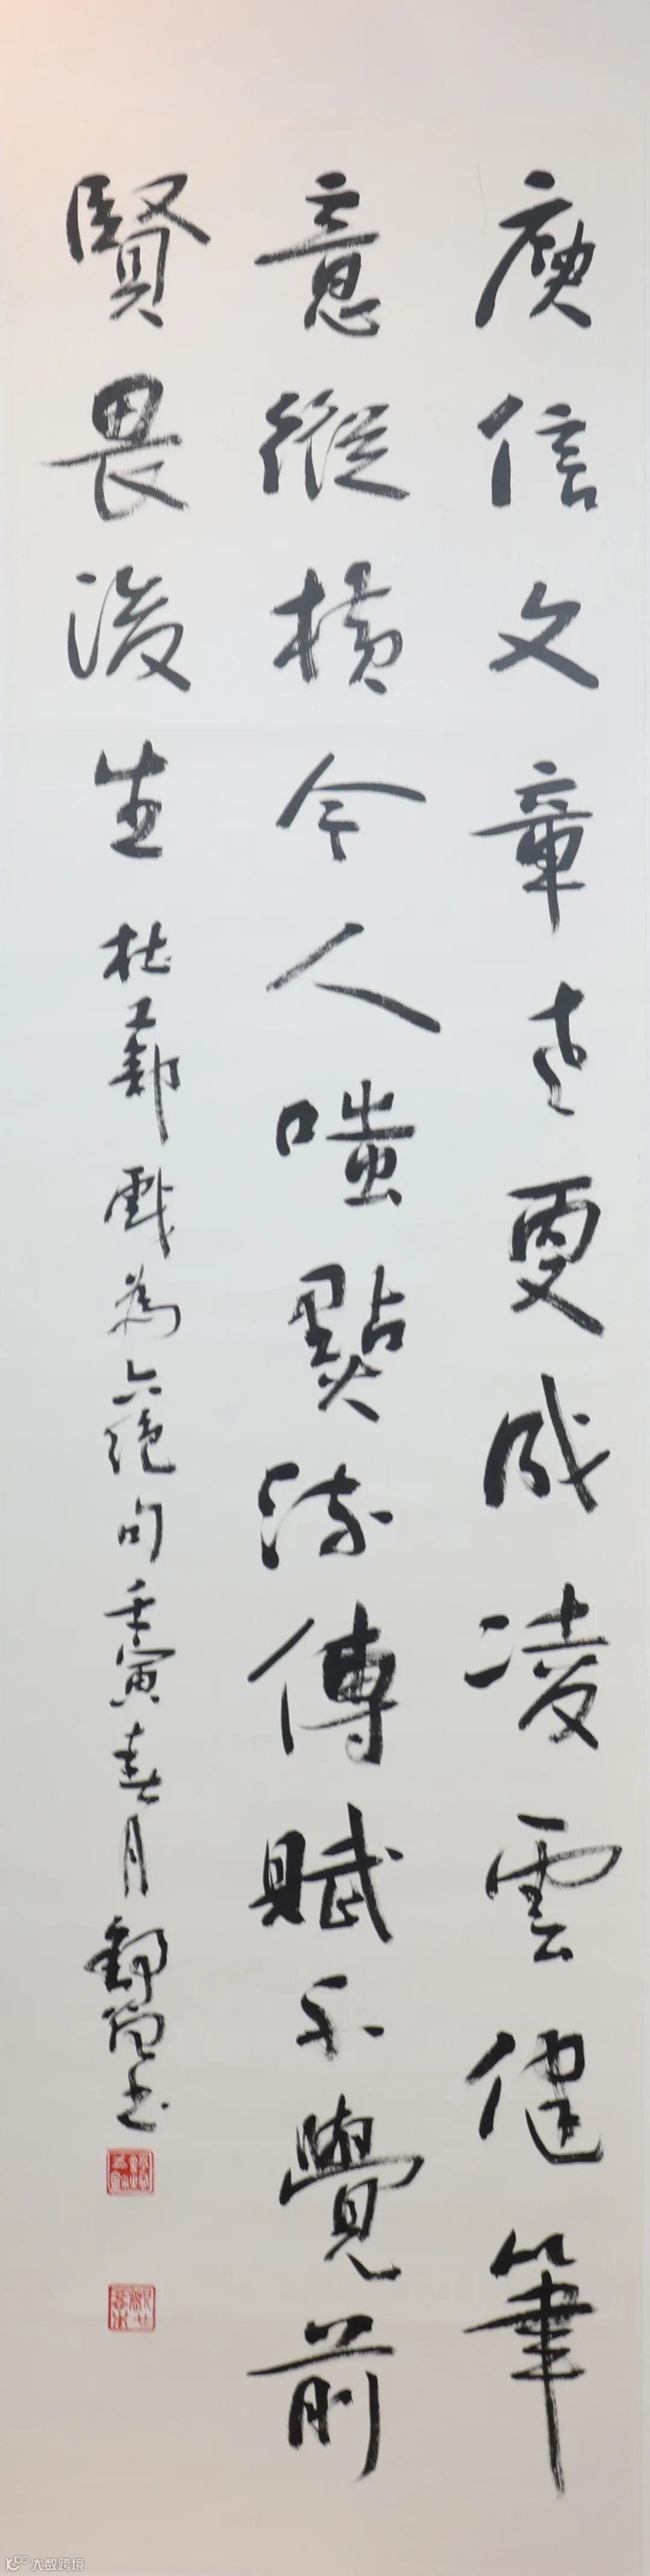 庾信文章老更成凌雲健筆
意縱橫今人嗤點流傳賦不覺前
賢畏後生 杜工部戲為六絕句 壬寅春月 書
大數跨境